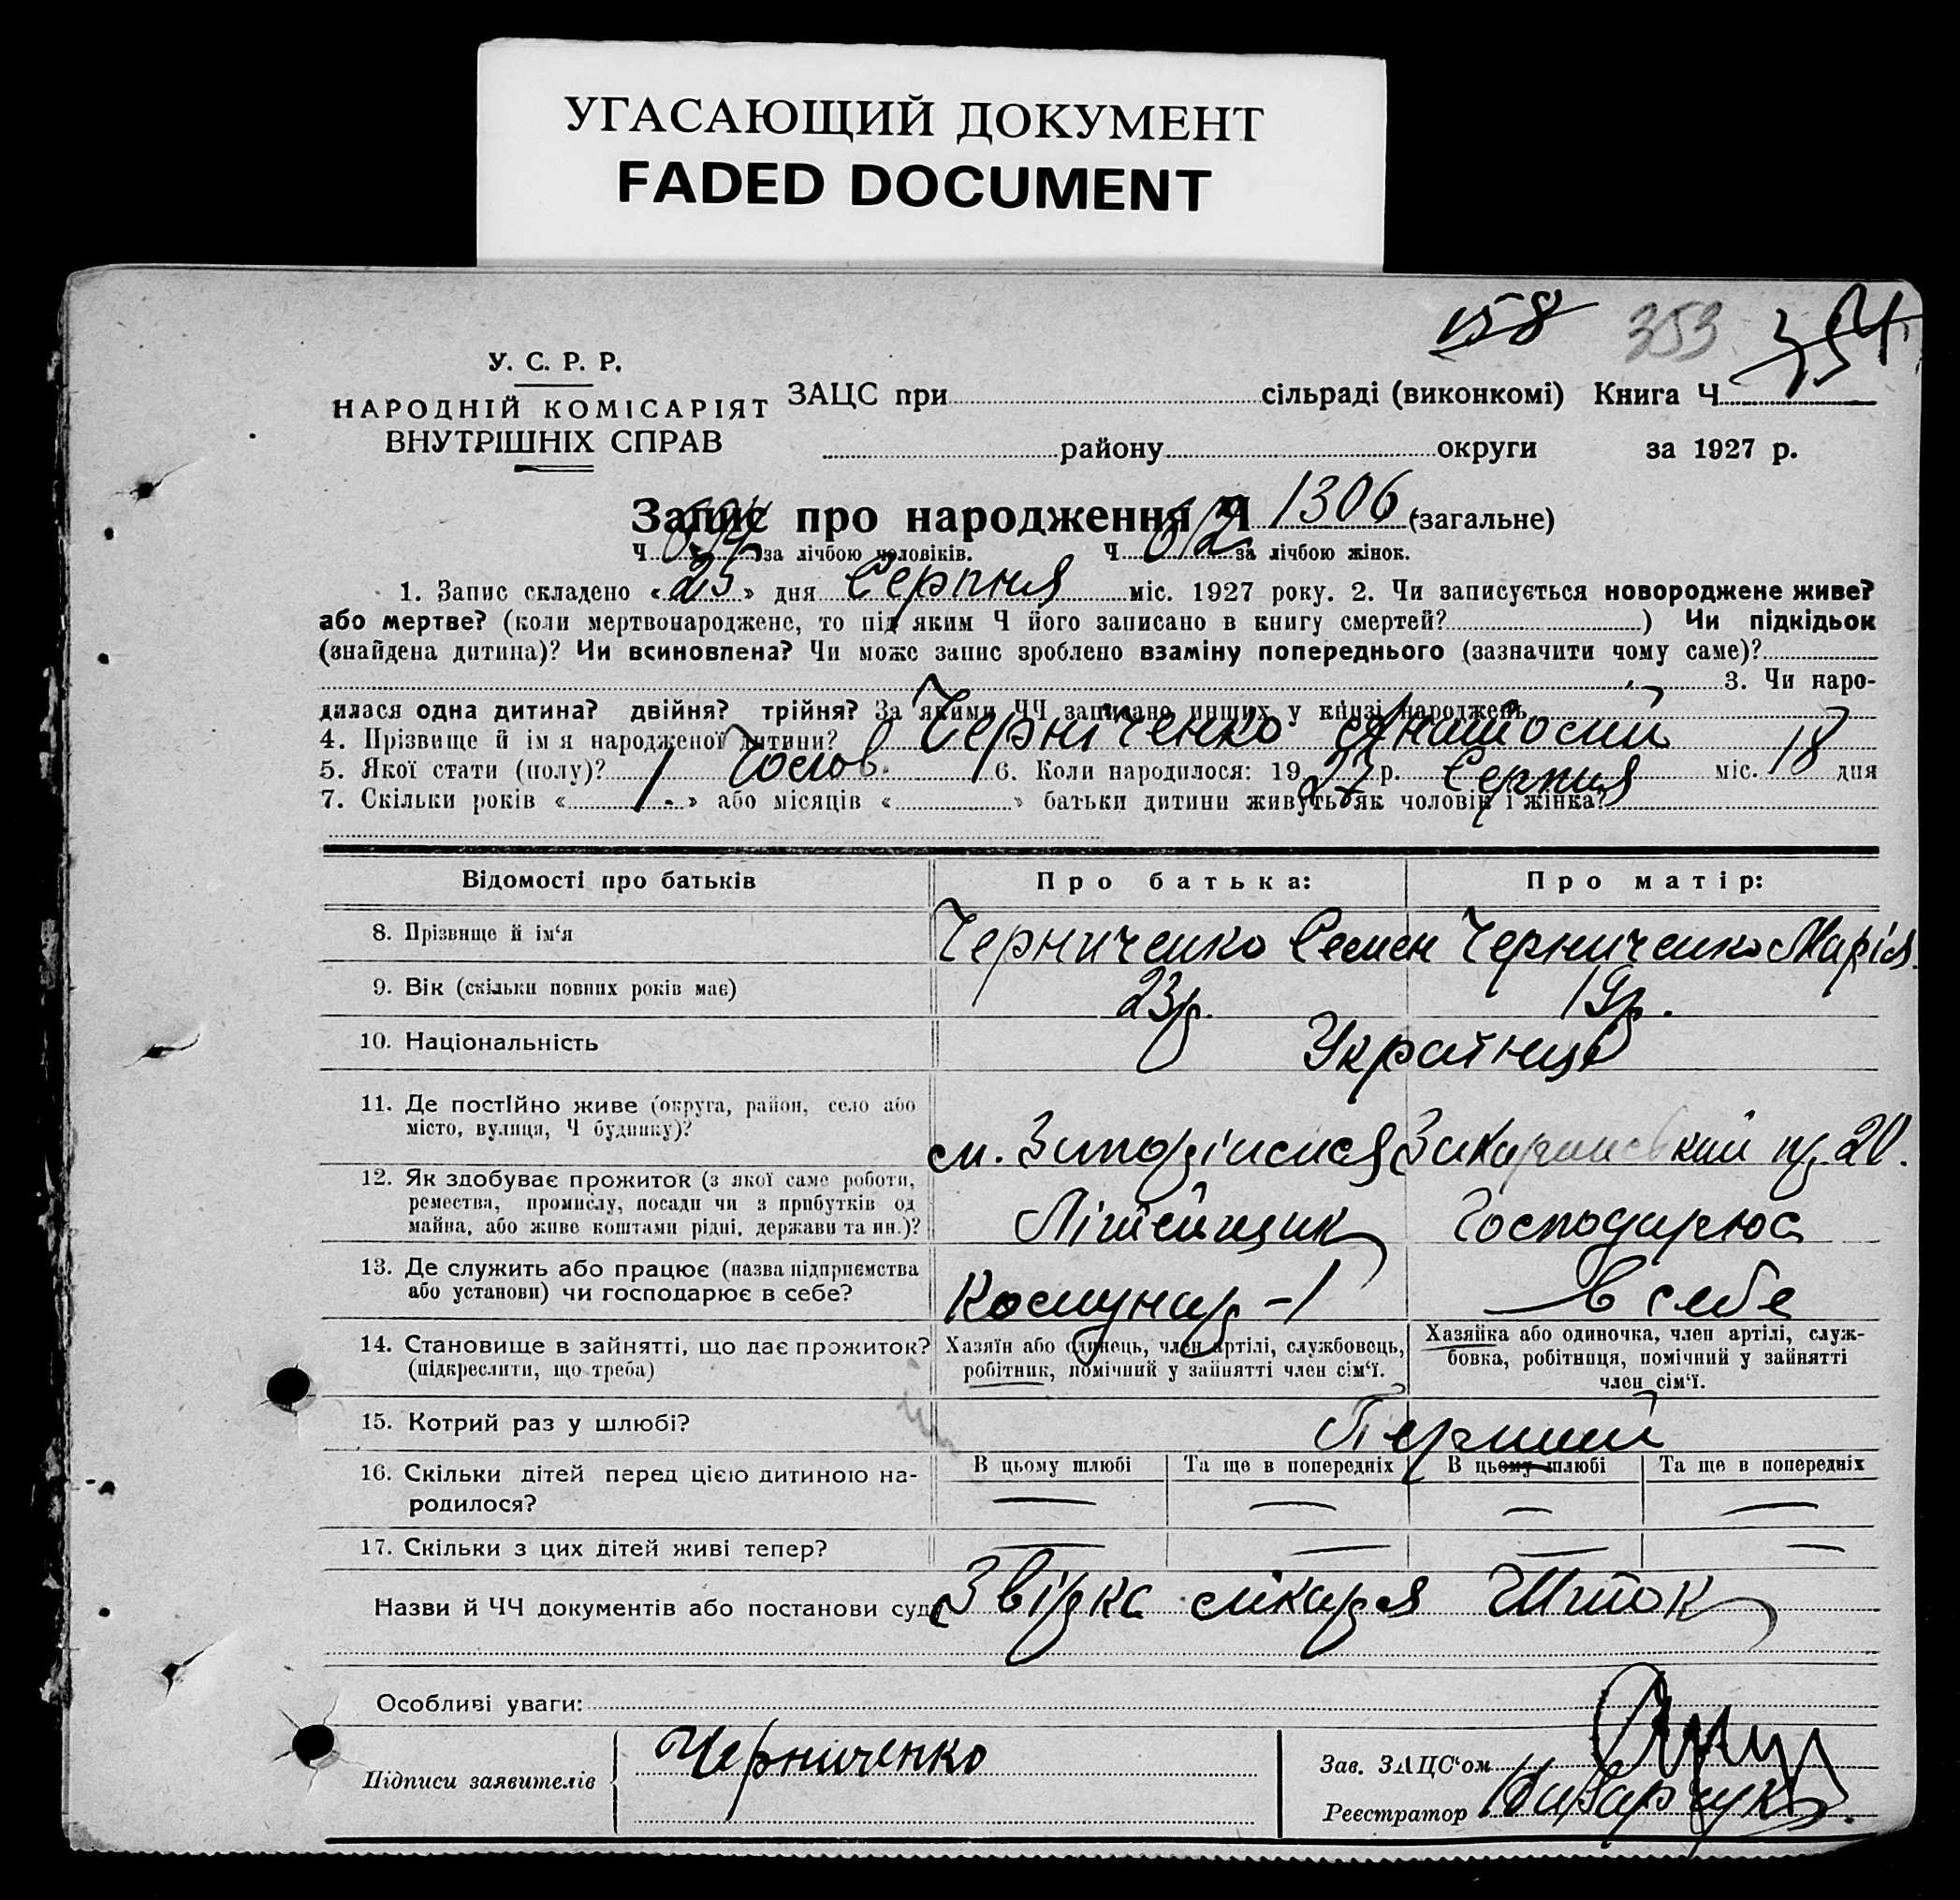 УГАСАЮЩИЙ ДОКУМЕНТ
FADED DOCUMENT
158 353 354
У. С. Р. Р.
НАРОДНІЙ КОМІСАРІЯТ
ВНУТРІШНІХ СПРАВ
ЗАЦС при сільраді (виконкомі) Книга Ч
району округи за 1927 р.
Запис про народження Ч 1306 (загальне)
Ч 694 за лічбою чоловіків. Ч 612 за лічбою жінок.
1. Запис складено «25» дня Серпня міс. 1927 року. 2. Чи записується новороджене живе?
або мертве? (коли мертвонароджене, то під яким Ч його записано в книгу смертей? ) Чи підкідьок
(знайдена дитина)? Чи всиновлена? Чи може запис зроблено взаміну попереднього (зазначити чому саме)?
3. Чи наро-
дилася одна дитина? двійня? трійня? За якими ЧЧ записано инших у книзі народжень
4. Прізвище й ім я народженої дитини? Черніченко Анатосий
5. Якої стати (полу)? Чолов. 6. Коли народилося: 1927 р. Серпня міс. 18 дня
7. Скільки років « - » або місяців « » батьки дитини живуть як чоловік і жінка?
Відомості про батьків Про батька: Про матір:
8. Прізвище й ім‘я Черниченко Семен Черниченко Марія
9. Вік (скільки повних років має) 23 р. 19 р.
10. Національність Українці
11. Де постійно живе (округа, район, село або
місто, вулиця, Ч будинку)?
м. Запоріжжя 20.
12. Як здобуває прожиток (з якої саме роботи,
ремества, промислу, посади чи з прибутків од
майна, або живе коштами рідні, держави та ин.)?
Літейщик Господарює
13. Де служить або працює (назва підприємства
або установи) чи господарює в себе?
Комунар - 1 в себе
14. Становище в зайнятті, що дає прожиток?
(підкреслити, що треба)
Хазяїн або одинець, член артілі, службовець,
робітник, помічний у зайнятті член сім‘ї.
Хазяйка або одиночка, член артілі, служ-
бовка, робітниця, помічний у зайнятті
член сім‘ї.
15. Котрий раз у шлюбі? Перший
16. Скільки дітей перед цією дитиною на-
родилося?
В цьому шлюбі Та ще в попередніх В цьому шлюбі Та ще в попередніх
— — — —
17. Скільки з цих дітей живі тепер? — — — —
Назви й ЧЧ документів або постанови суду Звірка лікаря Шток
Особливі уваги:
Підписи заявителів Черниченко
Зав. ЗАЦС‘ом
Реєстратор